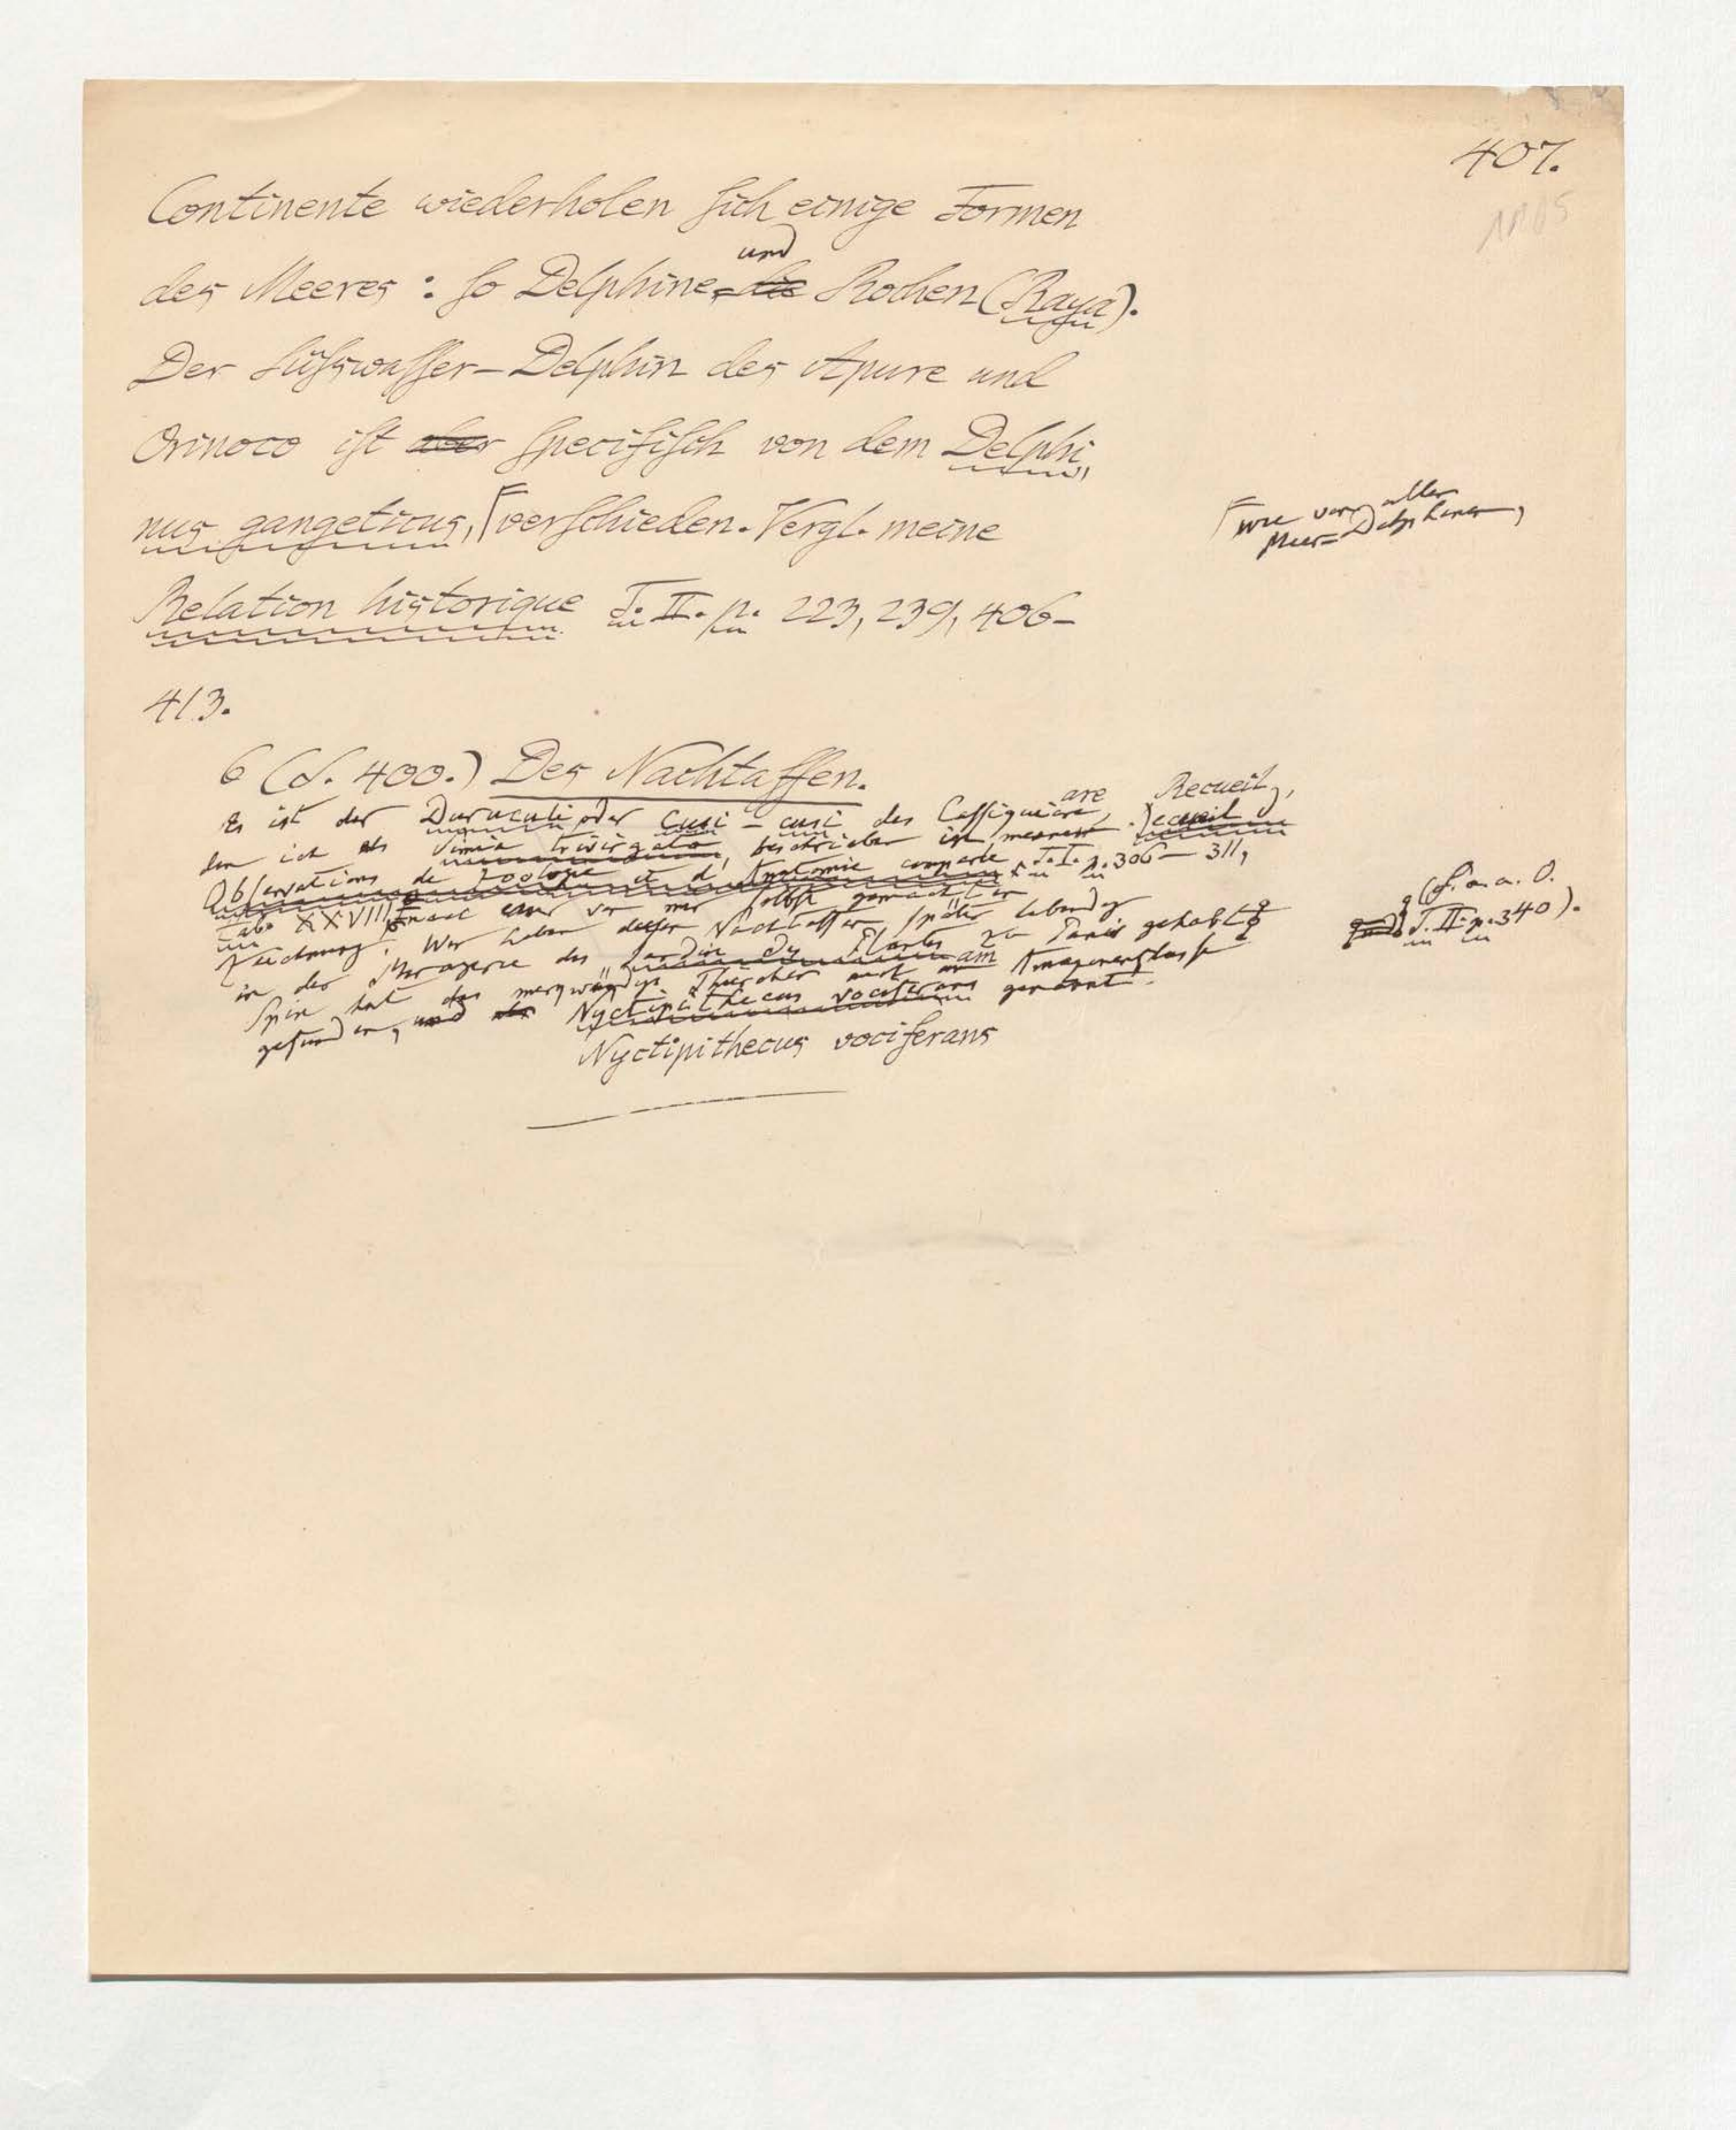 407.
Continente wiederholen sich einige Formen
des Meeres: so Delphine, die und Rochen (Raya).
Der Süßwasser-Delphin des Apure und
Orinoco ist aber specifisch von dem Delphi-
nus gangeticus, ⌈verschieden. Vergl. meine
⌈wie von allen
Meer-Delphinen,
Relation historique T. II. p. 223, 239, 406-
413.
6 (S. 400.) Des Nachtaffen.
Es ist der Duruculi oder Cusi-cusi des Cassiquiare,
are Recueil,
den ich als Simia trivirgata beschrieben in meinem Recueil
Observations de Zoologie et d'Anatomie comparée T. I. p. 306-311,
Tab. XXVIII nach einer von mir selbst gemachten
Zeichnung. Wir haben diesen Nachtaffen später lebendig
in der Menagerie des Jardin des Plantes zu Paris gehabt
(s. a. a. O.
T. II. p. 340).
Spix hat das merkwürdige Thierchen auch am Amazonenflusse
gefunden, und Nyctipithecus vociferans genannt.
Nyctipithecus vociferans